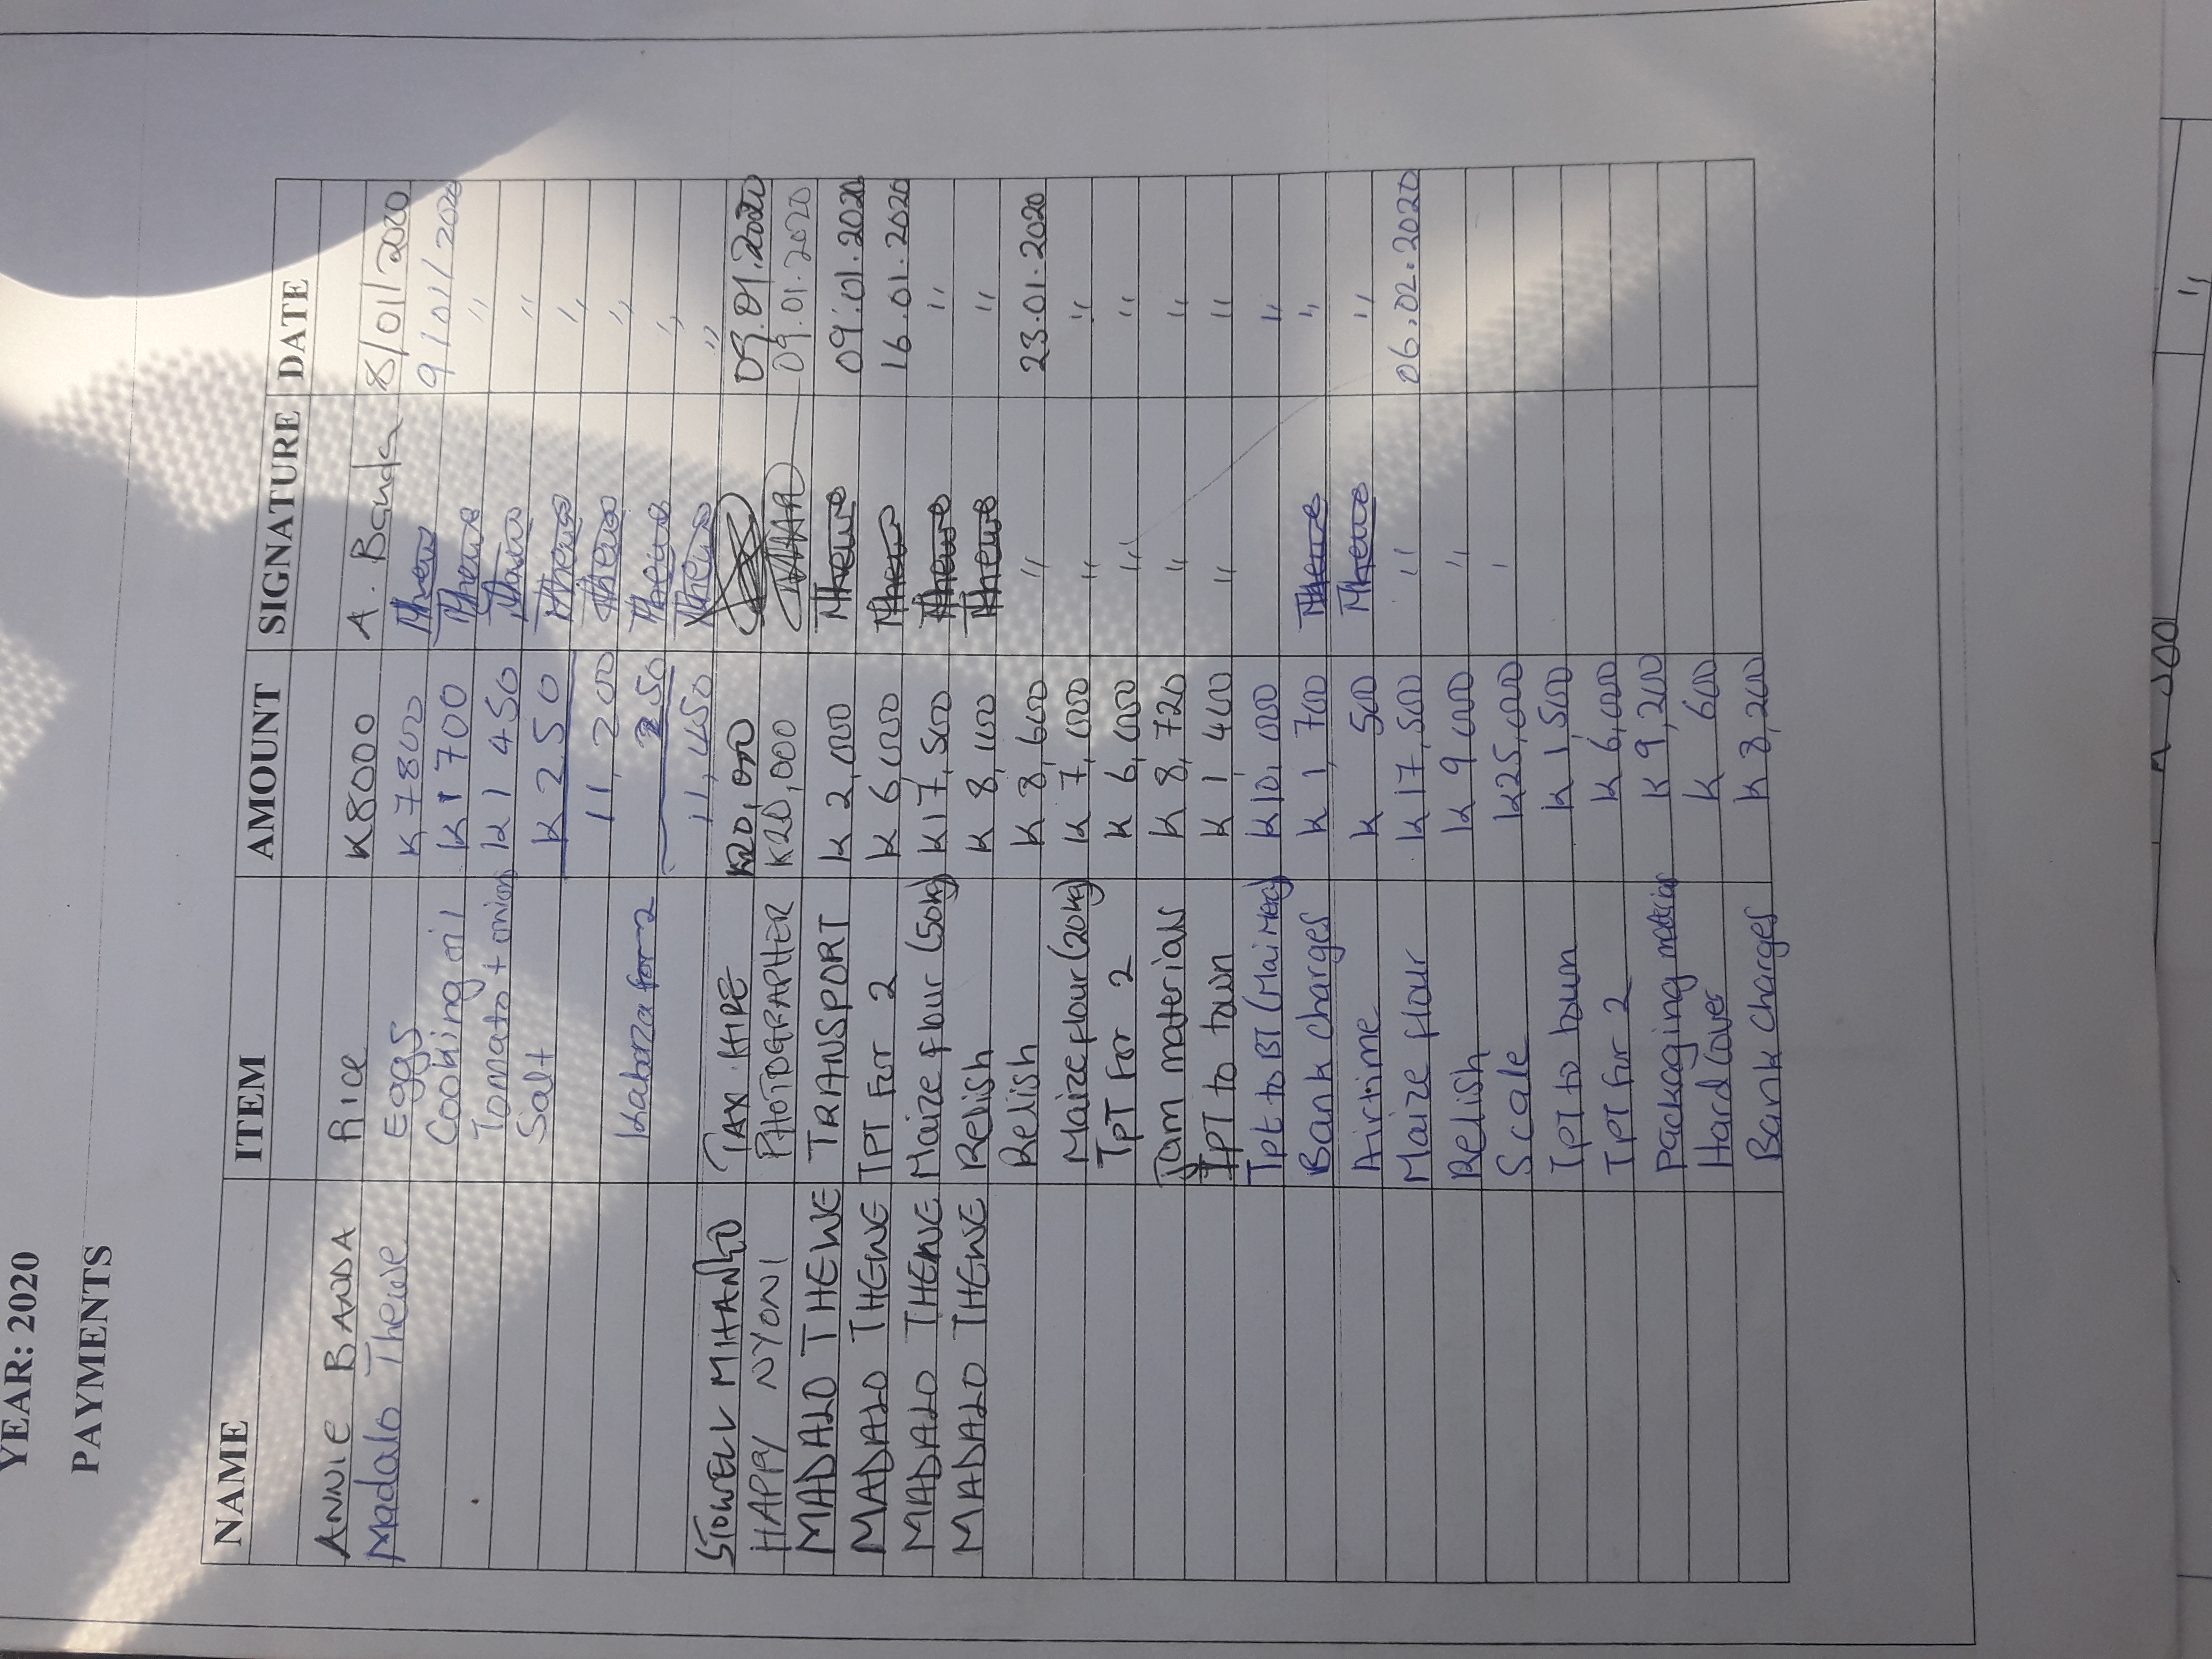 YEAR: 2020
PAYMENTS
NAME ITEM AMOUNT SIGNATURE DATE
ANNIE BANDA Rice K8000 A. Banda 8/01/2020
Madalo Thewe Eggs K 7800 Thewe 9/01/2020
Cooking oil K 1700 Thewe "
Tomato + onion K 1 450 Thewe "
Salt K 250 Thewe "
11,200 Thewe "
Kabanza for 2 250 Thewe "
11,450 Thewe "
STOWELL TAX HIRE K20,000 09.01.2020
HAPPY NYONI PHOTOGRAPHER K20,000 09.01.2020
MADALO THEWE TRANSPORT K 2,000 Thewe 09.01.2020
MADALO THEWE TPT For 2 K 6,000 Thewe 16.01.2020
MADALO THEWE Maize flour (50kg) K17,500 Thewe "
MADALO THEWE Relish K 8,100 Thewe "
Relish K 8,600 " 23.01.2020
Maize flour (20kg) K 7,000 " "
TPT For 2 K 6,000 " "
Jam materials K 8,720 " "
TPT to town K 1,400 " "
Tpt to BT (Mai Mercy) K10,000 "
Bank charges K 1,700 Thewe "
Airtime K 500 Thewe "
Maize flour K17,500 " 06.02.2020
Relish K 9,000 "
Scale K25,000 '
Tpt to town K 1,500
TPT for 2 K 6,000
Packaging material K 9,200
Hard Cover K 600
Bank Charges K 8,200
500
"